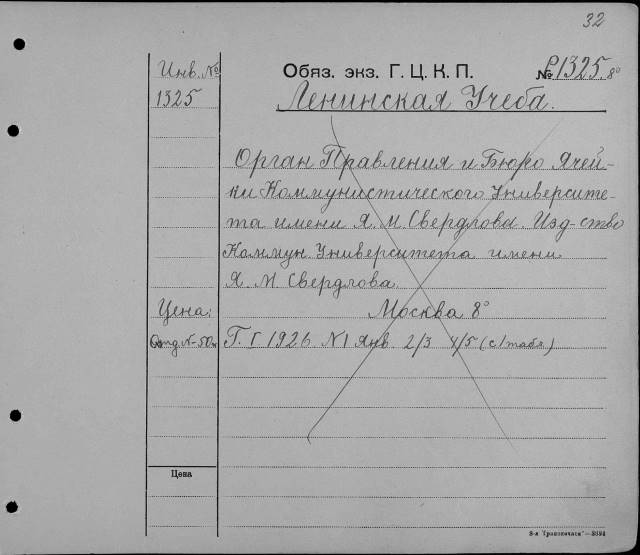 32
Инв. №
1325
Обяз. экз. Г. Ц. К. П. № Р1325 8°
Ленинская Учеба.
Орган Правления и Бюро Ячей-
ки Коммунистического Университе-
та имени Я. М. Свердлова. Изд-ство
Коммун. Университета имени
Я. М. Свердлова.
Цена: Москва 8°
Отд. №-50к Г. I 1926 №1 Янв. 2/3 4/5 (с/табл)
Цена
3-я "Транспечати"—3594